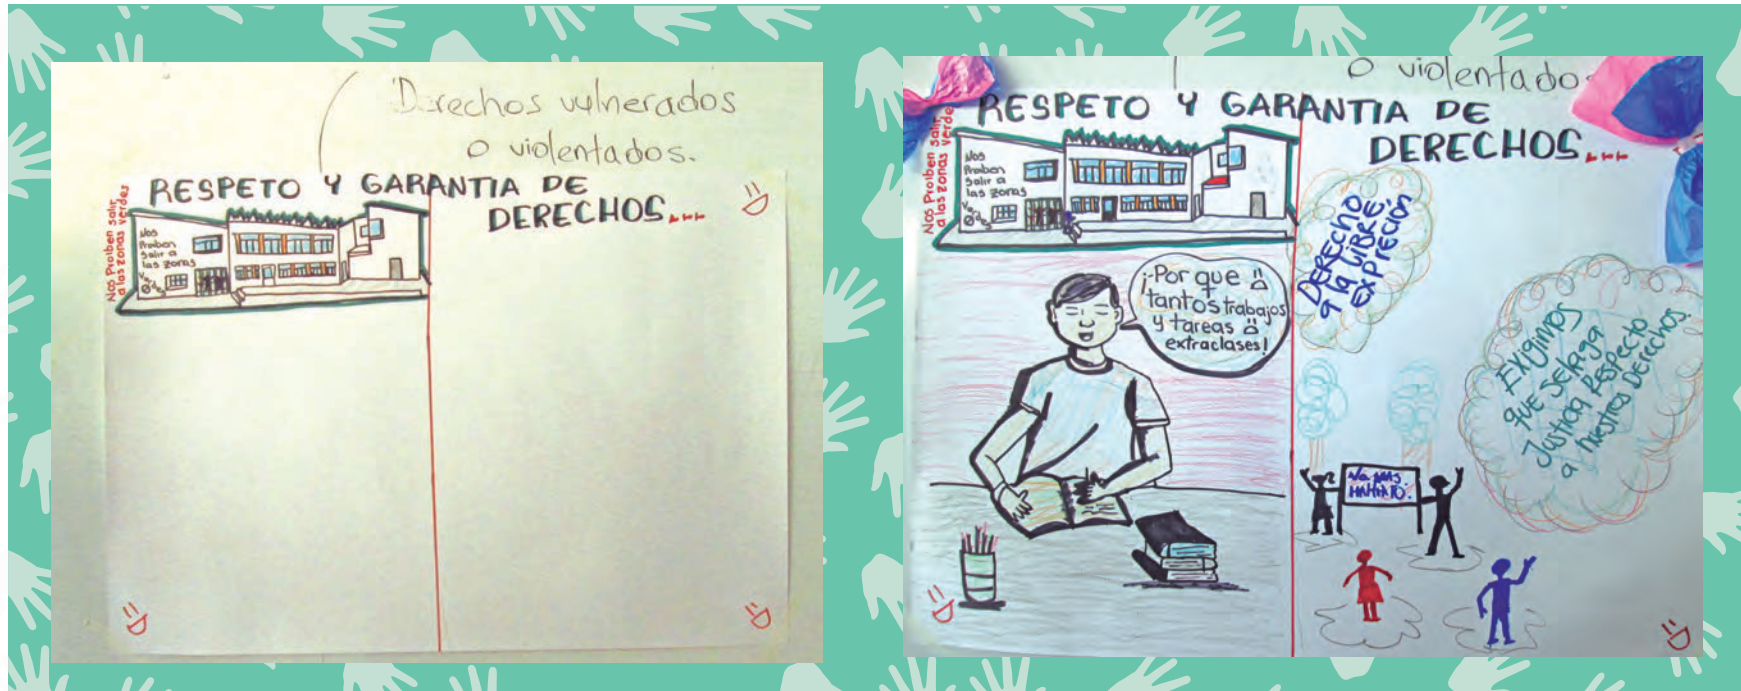 Derechos vulnerados
o violentados.
RESPETO Y GARANTIA DE
DERECHOS...
Nos Proiben salir
a las zonas verdes
Nos
Proiben
Salir a
las zonas
o violentados
RESPETO Y GARANTIA DE
DERECHOS...
Nos Proiben salir
a las zonas verdes
Nos
Proiben
Salir a
las zonas
¡Por que
tantos trabajos
y tareas
extraclases!
DERECHO
a la LIBRE
EXPRECIÓN
EXIGIMOS
que se haga
Justicia Respecto
a nuestros Derechos.
No MAS